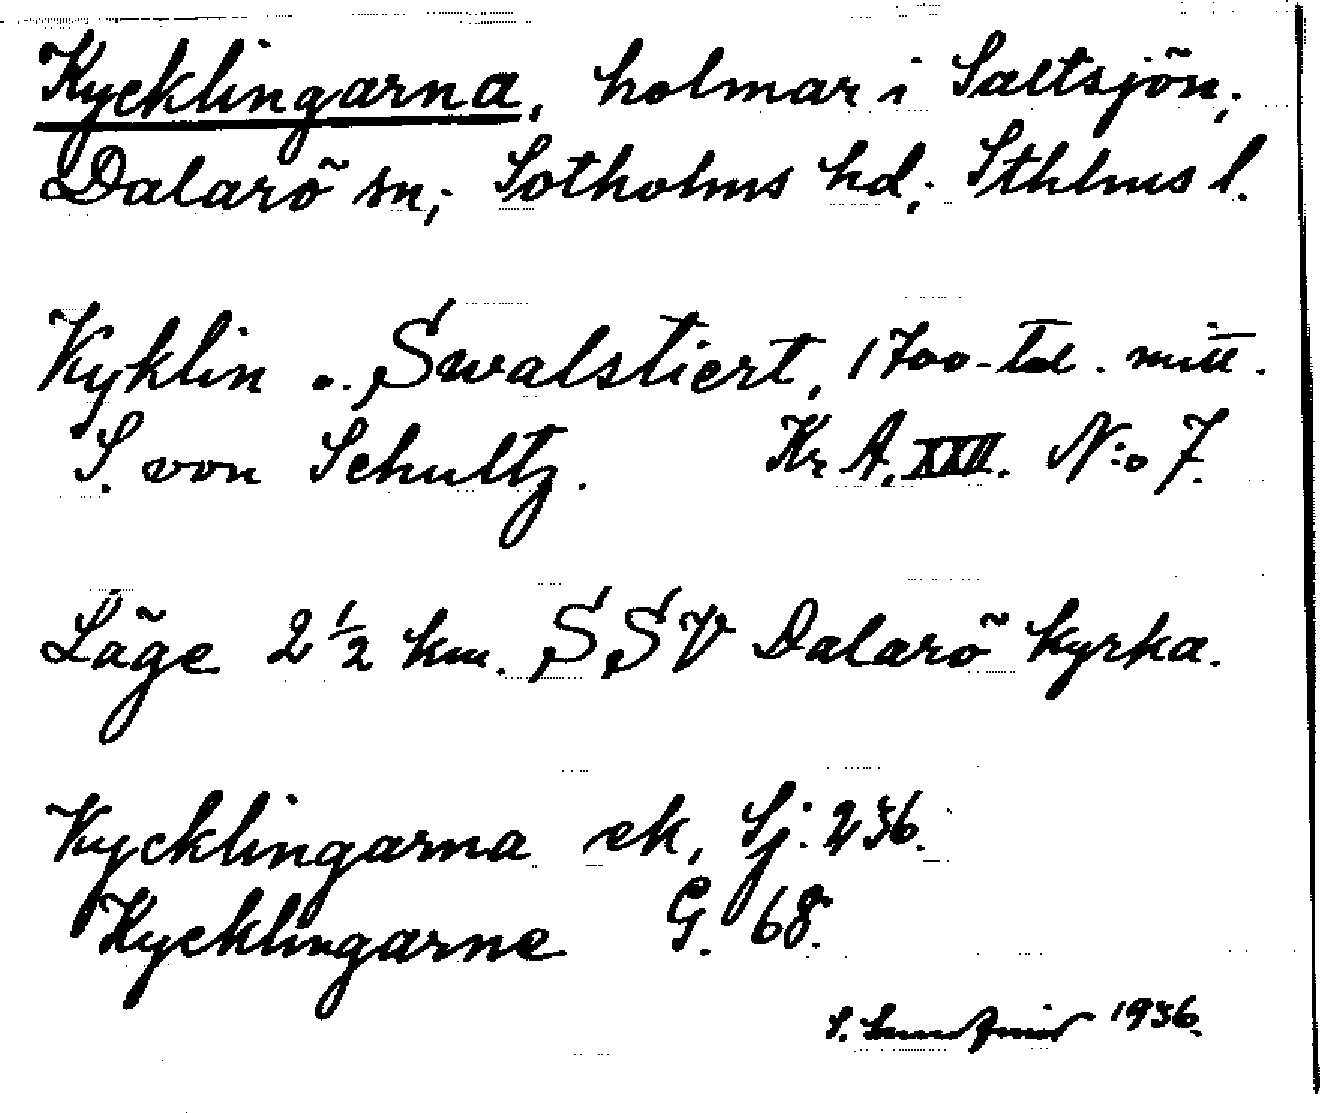 Kycklingarna, holmar i Saltsjön;
Dalarö sn; Sotholms hd; Sthlms l.
Kyklin .. Swalstiert, 1700-tal. mitt.
S. von Schultz. Kr A. XXII. N:o 7.
Läge 2 1/2 km. SSV Dalarö kyrka.
Kycklingarna ek, Sj: 236.
Kycklingarne G. 68.
S. 1936.